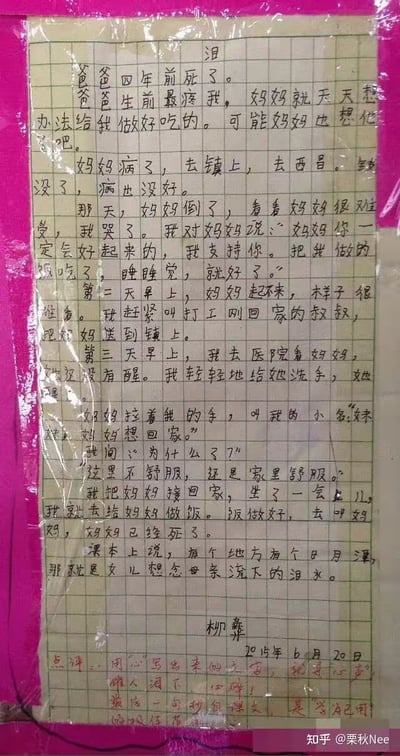 泪
爸爸四年前死了。
爸爸生前最疼我,妈妈就天天想
办法给我做好吃的。可能妈妈也想他
了吧。
妈妈病了,去镇上,去西昌。钱
没了,病也没好。
那天,妈妈倒了,看看妈妈很难
受,我哭了。我对妈妈说:“妈妈你一
定会好起来的,我支持你。把我做的
饭吃了,睡睡觉,就好了。”
第二天早上,妈妈起不来,样子很
难看。我赶紧叫打工刚回家的叔叔,
把妈妈送到镇上。
第三天早上,我去医院看妈妈,
她还没有醒。我轻轻地给她洗手,她
妈妈拉着我的手,叫我的小名:“妹
妹,妈妈想回家。”
我问:“为什么了?”
“这里不舒服,还是家里舒服。”
我把妈妈接回家,坐了一会儿,
我就去给妈妈做饭。饭做好,去叫妈
妈,妈妈已经死了。
课本上说,有个地方有个日月潭,
那就是女儿想念母亲流下的泪水。
柳彝
2015年6月20日
点评:用“心”写出来的文字,就是心声,
催人泪下
最后一句
知乎 @栗秋Nee